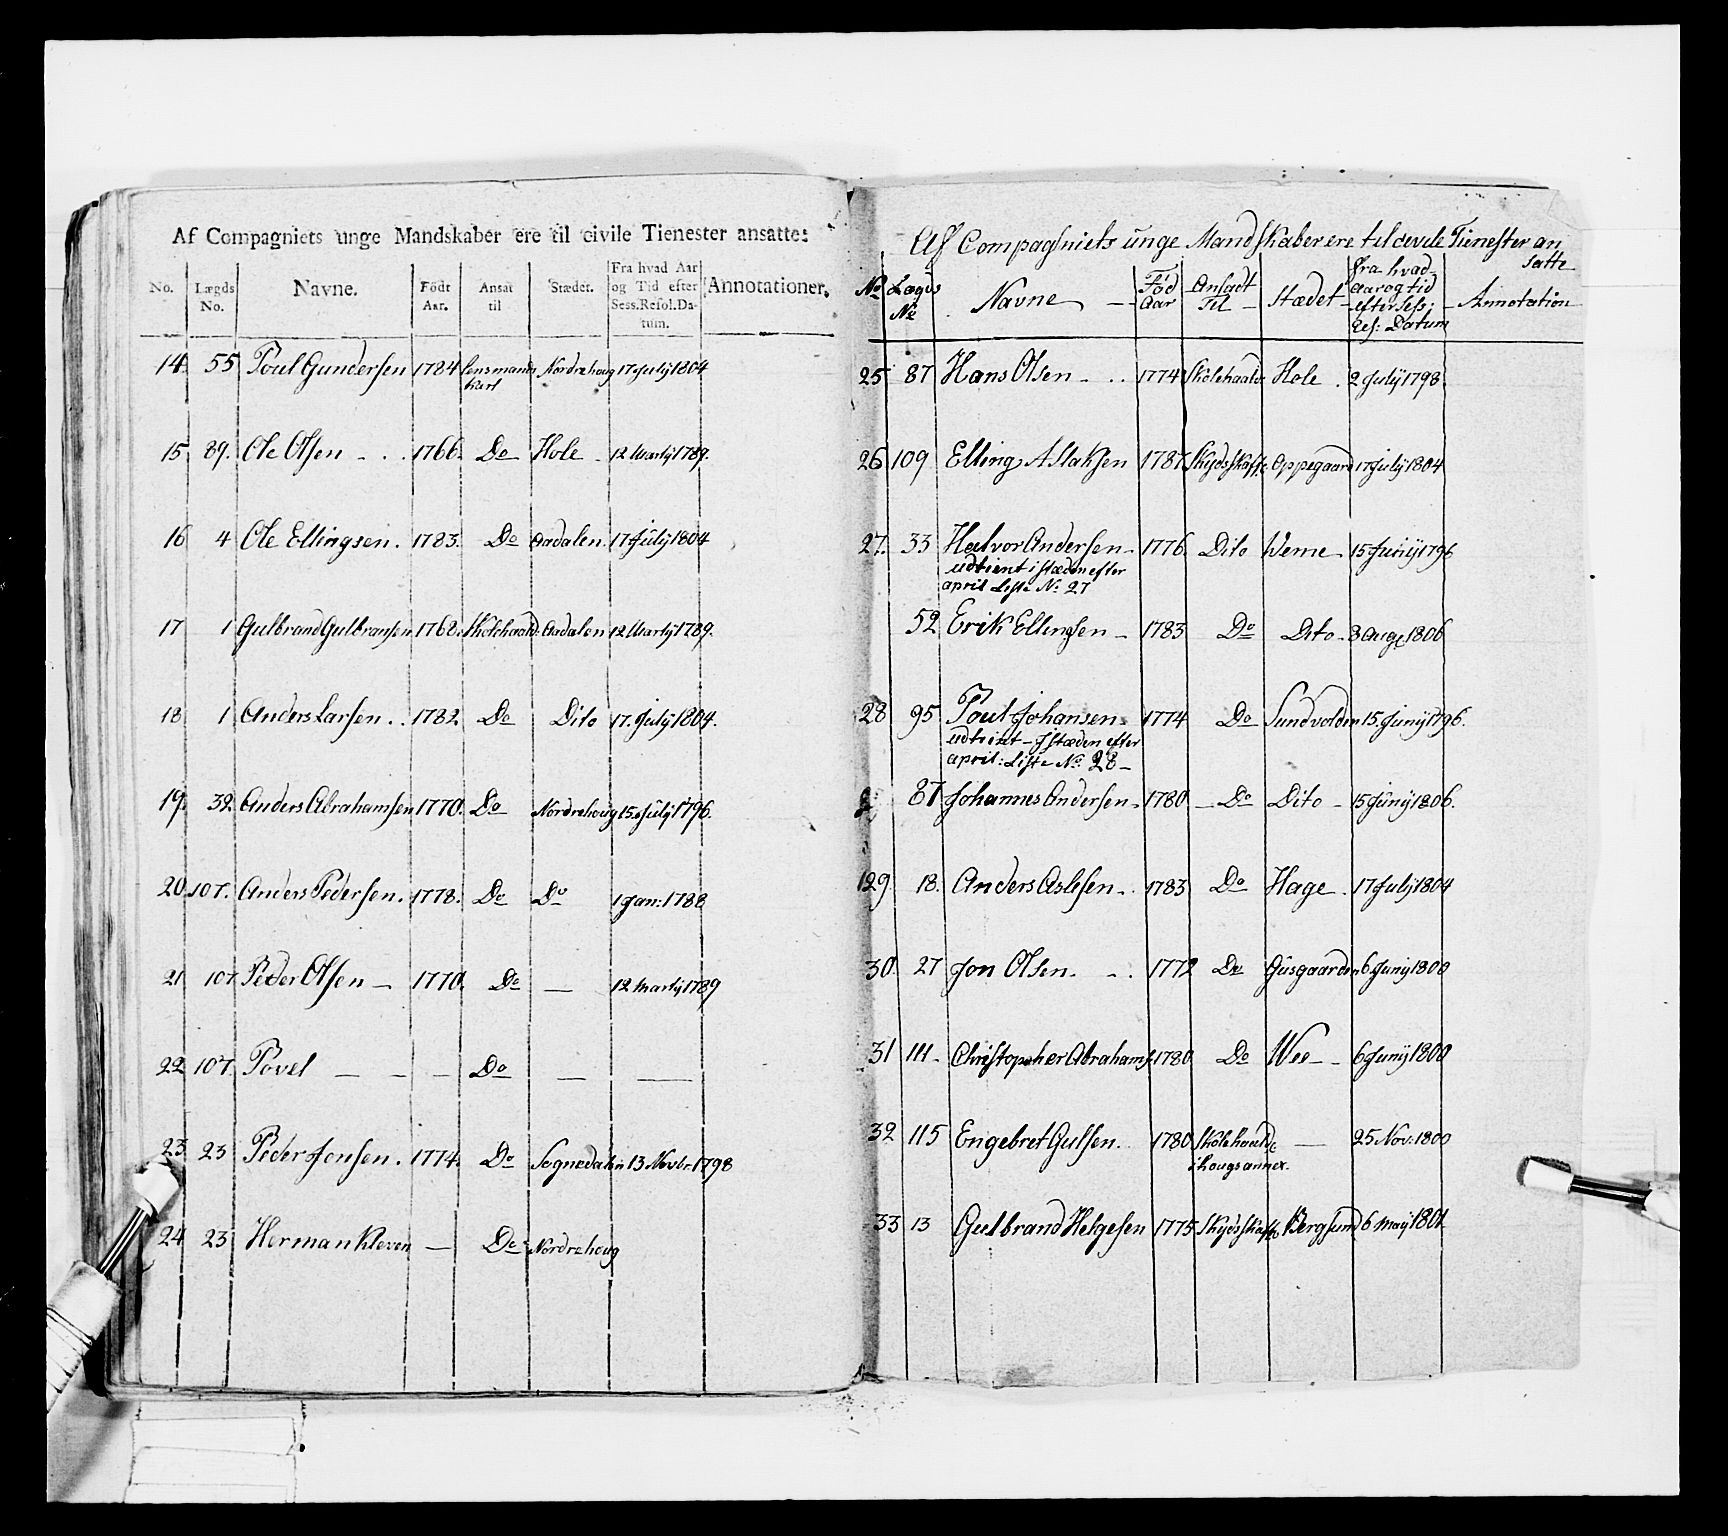 Af Compagniets unge Mandskaber ere til civile Tienester ansatte:
No. Lægds No. Navne. Födt Aar. Ansat til Stædet. Fra hvad Aar og Tid efter Sess.Resol.Datum. Annotationer.
14. 55 Poul Gundersen 1784 Lensmands Nordrehoug 17 July 1804
karl
15 89. Ole Olsen - . . 1766. Do Hole - 12 Martij 1789.
16 4 Ole Ellingsen. 1783. Do Aadalen. 17 July 1804
17 1 Gulbrand Gulbransen 1768. Skoleholde Aadalen 12 Martij 1789.
18 1 Anders Larsen . . 1782 Do Dito 17. July 1804.
19. 32. Anders Abrahamsen 1770. Do Nordrehoug 15. July 1796.
20. 107. Anders Pedersen. 1778. Do Do 1 Jan: 1788
21 107 Peder Olsen — 1770. Do — 12 Martij 1789
22 107. Povel — — — Do — —
23 23 Peder Jonsen. 1774. Do Sognedalen 13 Novbr. 1798
24 23 Herman Kleven — Do Nordrehoug
Af Compagniets unge Mandskaber ere til civile Tienester an
satte
No Lægds No Navne — Föd Aar Ansadt Til — Stædet fra hvad Aar og tid efter Sess: Res: Datum Annotation
25 87 Hans Olsen - . . 1774 Skolehaald. Hole . 2 July 1798.
26 109 Elling Aslaksen 1787. Skydsskaffe Oppegaard 17 July 1804
27. 33 Halvor Andersen - 1776. Dito Weme - 15 Junij 1796
udtient i stæden efter
april Liste No. 27
52 Erik Ellingsen - 1783 Do Dito - 8 Aug 1806
28 95 Poul Johansen. 1774 Do Sundvolden 15. Junij 1796.
udtient - J stæden efter
april: Liste No. 28 -
87 Johannes Andersen - 1780 - Do Dito - 15 Junij 1806.
29 18. Anders Aslesen - . 1783 Do Hage . 17 July 1804
30. 27 Jon Olsen. - . . 1772 Do Gusgaarden 6 Junij 1800
31 111 - Christopher Abrahams. 1780 Do Wee - - 6 Junij 1800
32 115 Engebret Gulsen. 1780 Skolehaald. — 25 Nov: 1800
i Hougs annex.
33 13 Gulbrand Helgesen 1775 Skydsskaffe Bergsund 6 maij 1801